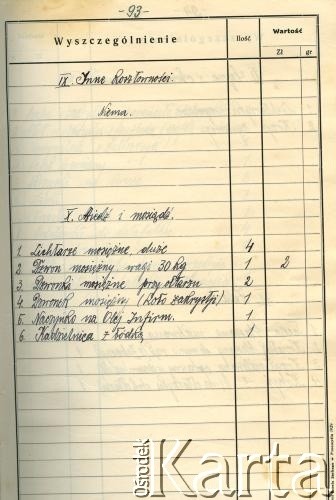 -93-
Wyszczególnienie Ilość Wartość
Zł gr
IX. Inne Kosztowności.
Niema.
X. Miedź i mosiądz.
1 Lichtarze mosiężne, duże 4
2. Dzwon mosiężny wagi 30 kg 1 2
3 Dzwonki mosiężne przy ołtarzu 2
4. Dzwonek mosiężn (koło zakrystji) 1
5. Naczynko na Olej Infirm. 1
6. Kadzielnica z łódką 1
ośrodek
Karta